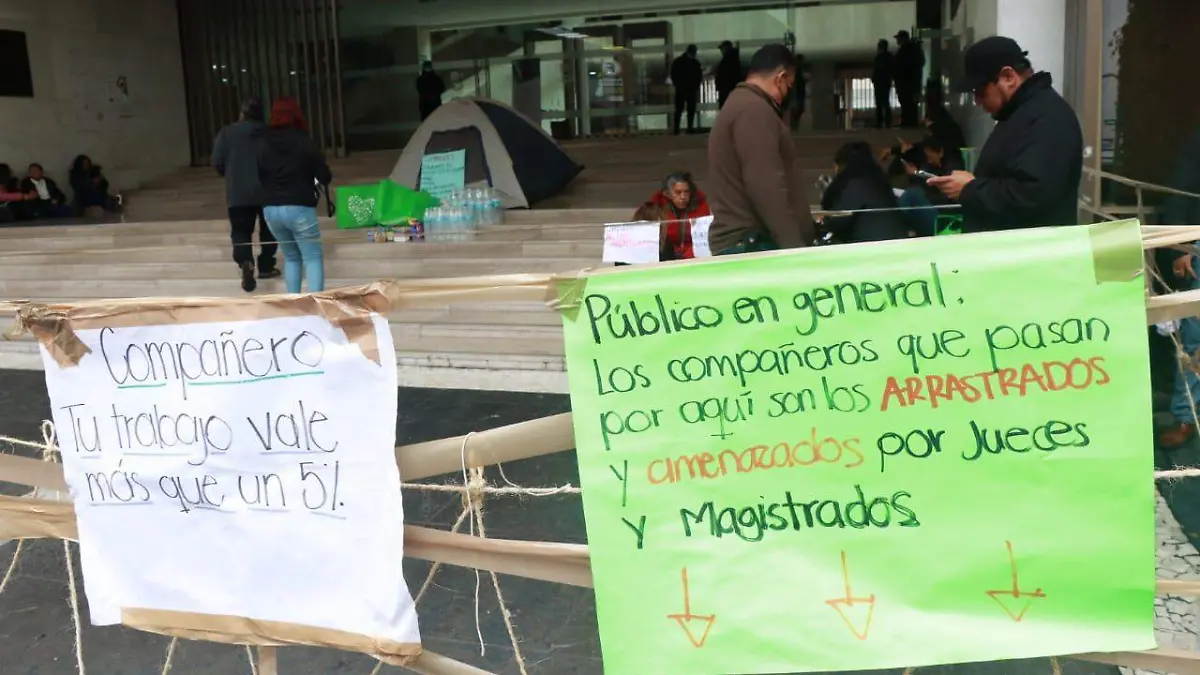 Compañero
Tu trabajo vale
más que un 5%.
Público en general:
Los compañeros que pasan
por aquí son los ARRASTRADOS
y amenazados por Jueces
y Magistrados